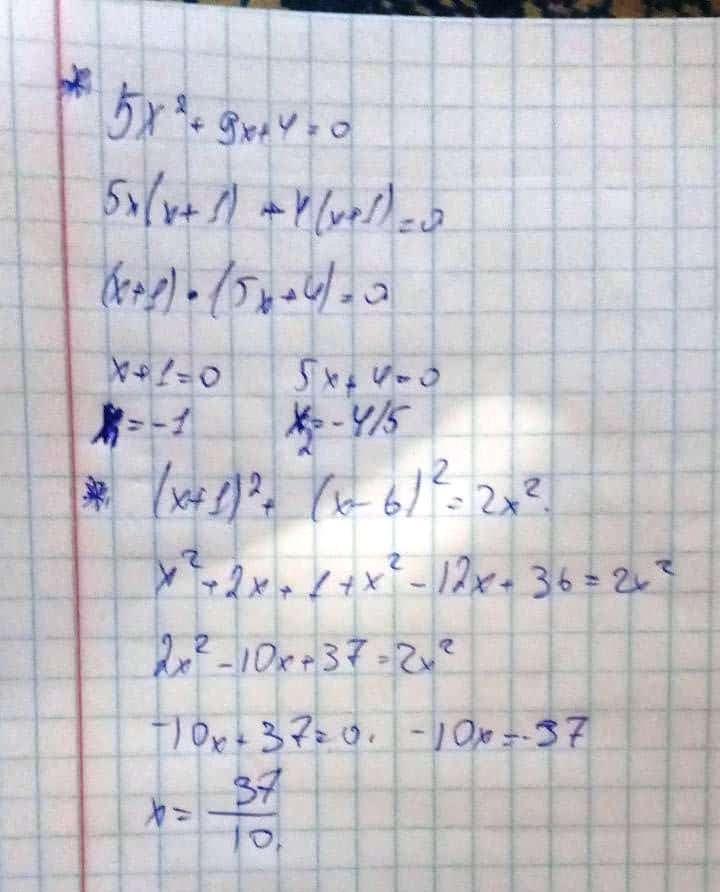 * 5x² + 9x + 4 = 0
5x(x+1) + 4(x+1) = 0
(x+1) · (5x+4) = 0
x+1=0 5x+4=0
x=-1 x₂=-4/5
* (x+1)² + (x-6)² = 2x².
x² + 2x + 1 + x² - 12x + 36 = 2x²
2x² - 10x + 37 = 2x²
-10x + 37 = 0. -10x = -37
x = 37/10.